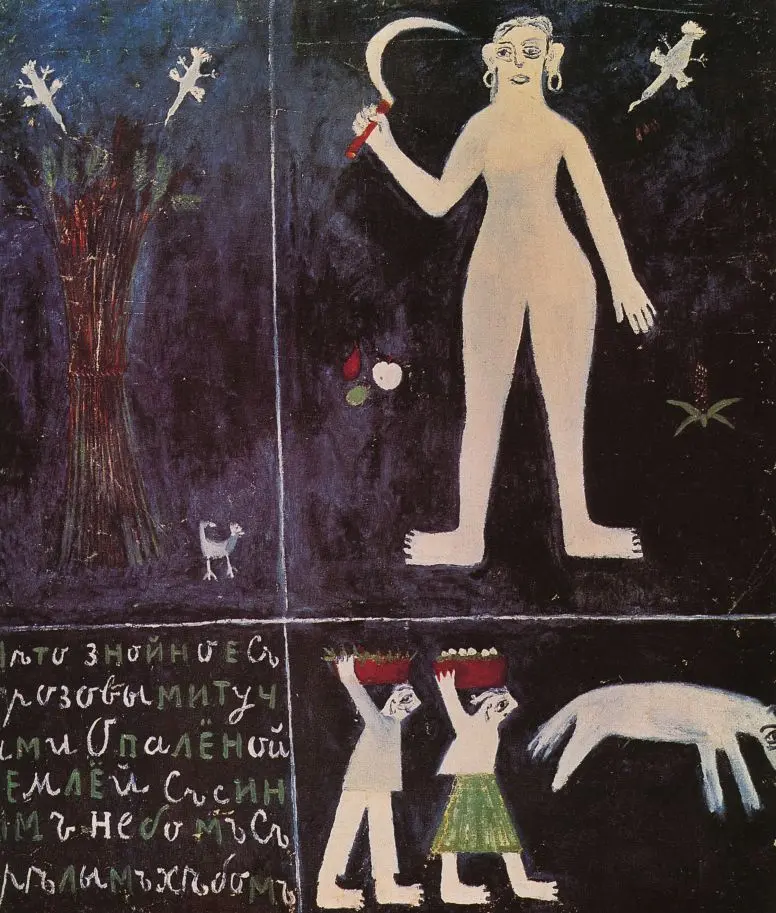 Лѣто знойноЕ Съ
грозовыми туч
ами Опалёной
землёй Съ син
имъ небомъ Съ
зрѣлымъ хлѣбомъ